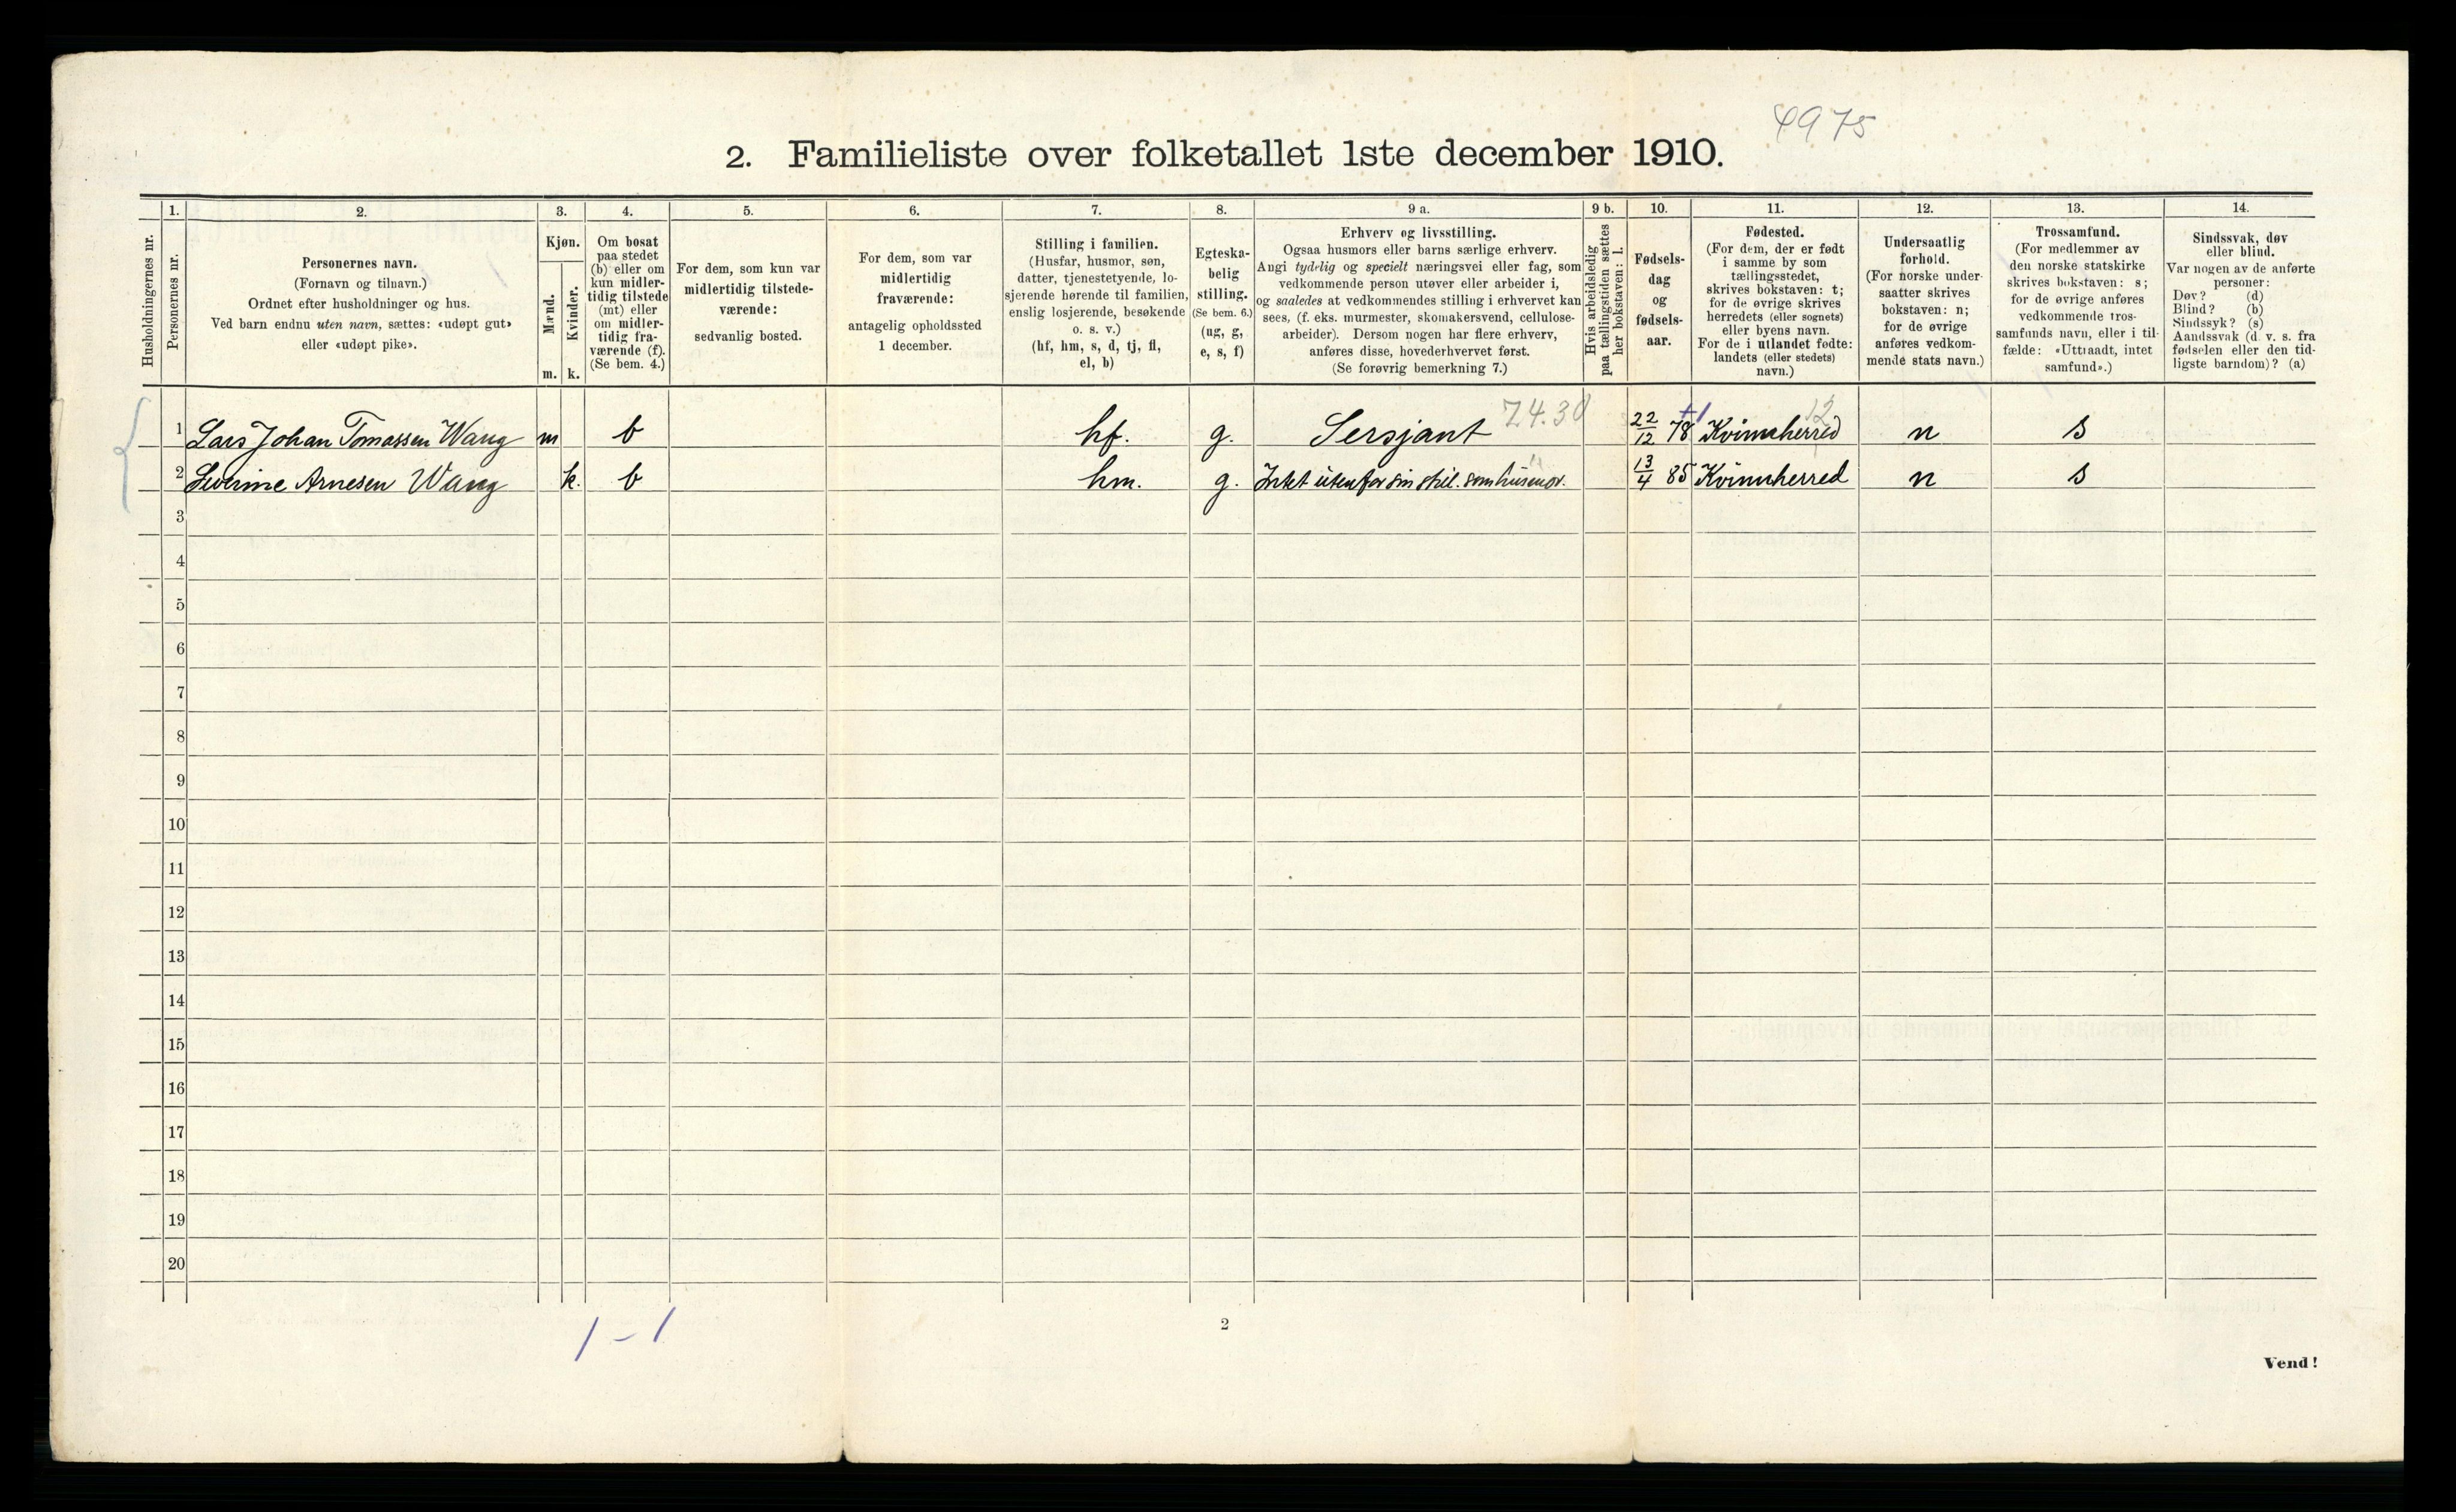 4975
2. Familieliste over folketallet 1ste december 1910.
Husholdningernes nr.
1.
Personernes nr.
2.
Personernes navn.
(Fornavn og tilnavn.)
Ordnet efter husholdninger og hus.
Ved barn endnu uten navn, sættes: «udøpt gut»
eller «udøpt pike».
3.
Kjøn.
Mænd.
Kvinder.
m. k.
4.
Om bosat
paa stedet
(b) eller om
kun midler-
tidig tilstede
(mt) eller
om midler-
tidig fra-
værende (f).
(Se bem. 4.)
5.
For dem, som kun var
midlertidig tilstede-
værende:
sedvanlig bosted.
6.
For dem, som var
midlertidig
fraværende:
antagelig opholdssted
1 december.
7.
Stilling i familien.
(Husfar, husmor, søn,
datter, tjenestetyende, lo-
sjerende hørende til familien,
enslig losjerende, besøkende
o. s. v.)
(hf, hm, s, d, tj, fl,
el, b)
8.
Egteska-
belig
stilling.
(Se bem. 6.)
(ug, g,
e, s, f)
9 a.
Erhverv og livsstilling.
Ogsaa husmors eller barns særlige erhverv.
Angi tydelig og specielt næringsvei eller fag, som
vedkommende person utøver eller arbeider i,
og saaledes at vedkommendes stilling i erhvervet kan
sees, (f. eks. murmester, skomakersvend, cellulose-
arbeider). Dersom nogen har flere erhverv,
anføres disse, hovederhvervet først.
(Se forøvrig bemerkning 7.)
9 b.
Hvis arbeidsledig
paa tællingstiden sættes
her bokstaven: l.
10.
Fødsels-
dag
og
fødsels-
aar.
11.
Fødested.
(For dem, der er født
i samme by som
tællingsstedet,
skrives bokstaven: t;
for de øvrige skrives
herredets (eller sognets)
eller byens navn.
For de i utlandet fødte:
landets (eller stedets)
navn.)
12.
Undersaatlig
forhold.
(For norske under-
saatter skrives
bokstaven: n;
for de øvrige
anføres vedkom-
mende stats navn.)
13.
Trossamfund.
(For medlemmer av
den norske statskirke
skrives bokstaven: s;
for de øvrige anføres
vedkommende tros-
samfunds navn, eller i til-
fælde: «Uttraadt, intet
samfund».)
14.
Sindssvak, døv
eller blind.
Var nogen av de anførte
personer:
Døv? (d)
Blind? (b)
Sindssyk? (s)
Aandssvak (d. v. s. fra
fødselen eller den tid-
ligste barndom)? (a)
1 Lars Johan Tomassen Wang m b hf. g. Sersjant 74.30 22/12 78 Kvinnherred 12 n s
2 Severine Arnesen Wang k. b hm. g. Intet utenfor sin stil. som husmor. 13/4 85 Kvinnherred n s
3
4
5
6
7
8
9
10
11
12
13
14
15
16
17
18
19
20
1 - 1
2
Vend!